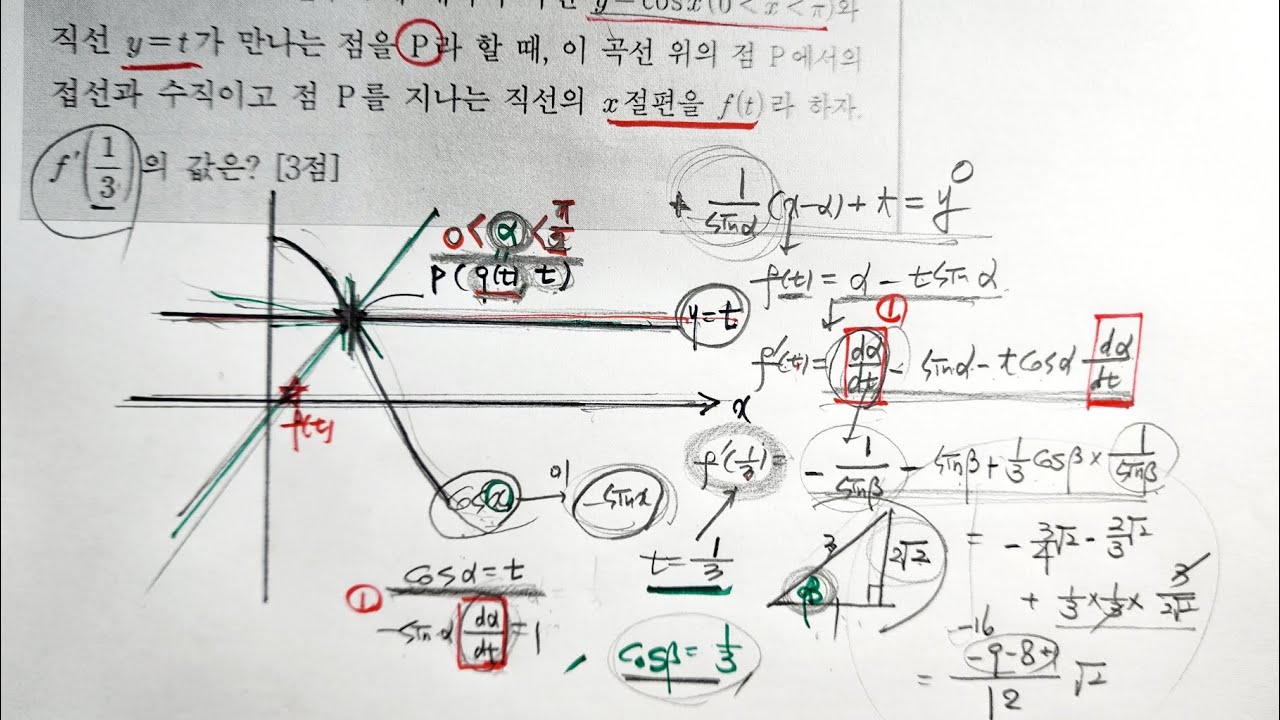 y=cosx(0<x<π)와
직선 y=t가 만나는 점을 P라 할 때, 이 곡선 위의 점 P에서의
접선과 수직이고 점 P를 지나는 직선의 x절편을 f(t)라 하자.
f'(1/3)의 값은? [3점]
0<α<π/2
P(g(t), t)
y=t
x
f(t)
+ 1/sinα (x-α)+t=y 0
f(t)=α-tsinα
①
f'(t)=dα/dt - sinα-tcosα dα/dt
f'(1/3)= -1/sinβ - sinβ+1/3 cosβ× 1/sinβ
cosx → -sinx
t=1/3
3
2√2
β
1
= -3/4√2-2/3√2
+ 1/3×1/3×3/2√2
cosα=t
① -sinα dα/dt=1
cosβ=1/3
-16
= -9-8+1/12 √2